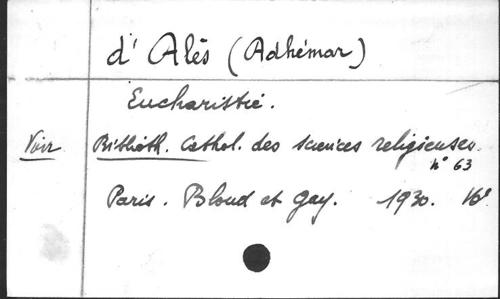 d'Alès (Adhémar)
Eucharistie.
Voir Biblioth. Cathol. des sciences religieuses.
n° 63
Paris. Bloud et Gay. 1930. 16°